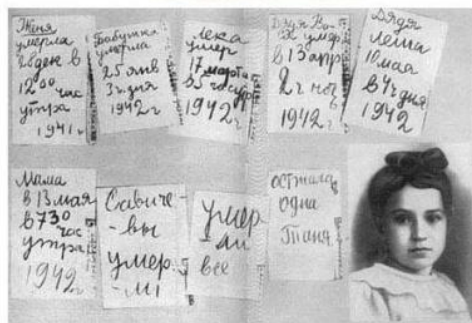 Женя
умерла
28 дек в
12 00 час
утра
1941 г
Бабушка
умерла
25 янв
3 ч. дня
1942 г
Лека
умер
17 марта
в 5 часутр
1942 г
Дядя Ва
ся умер
в 13 апр
2 ч ноч
1942 г
Дядя
Леша
10 мая
в 4 ч дня
1942
Мама
в 13 мая
в 7 30
час
утра
1942 г
Савиче
-вы
умер
-ли
умер
-ли
все
осталась
одна
Таня